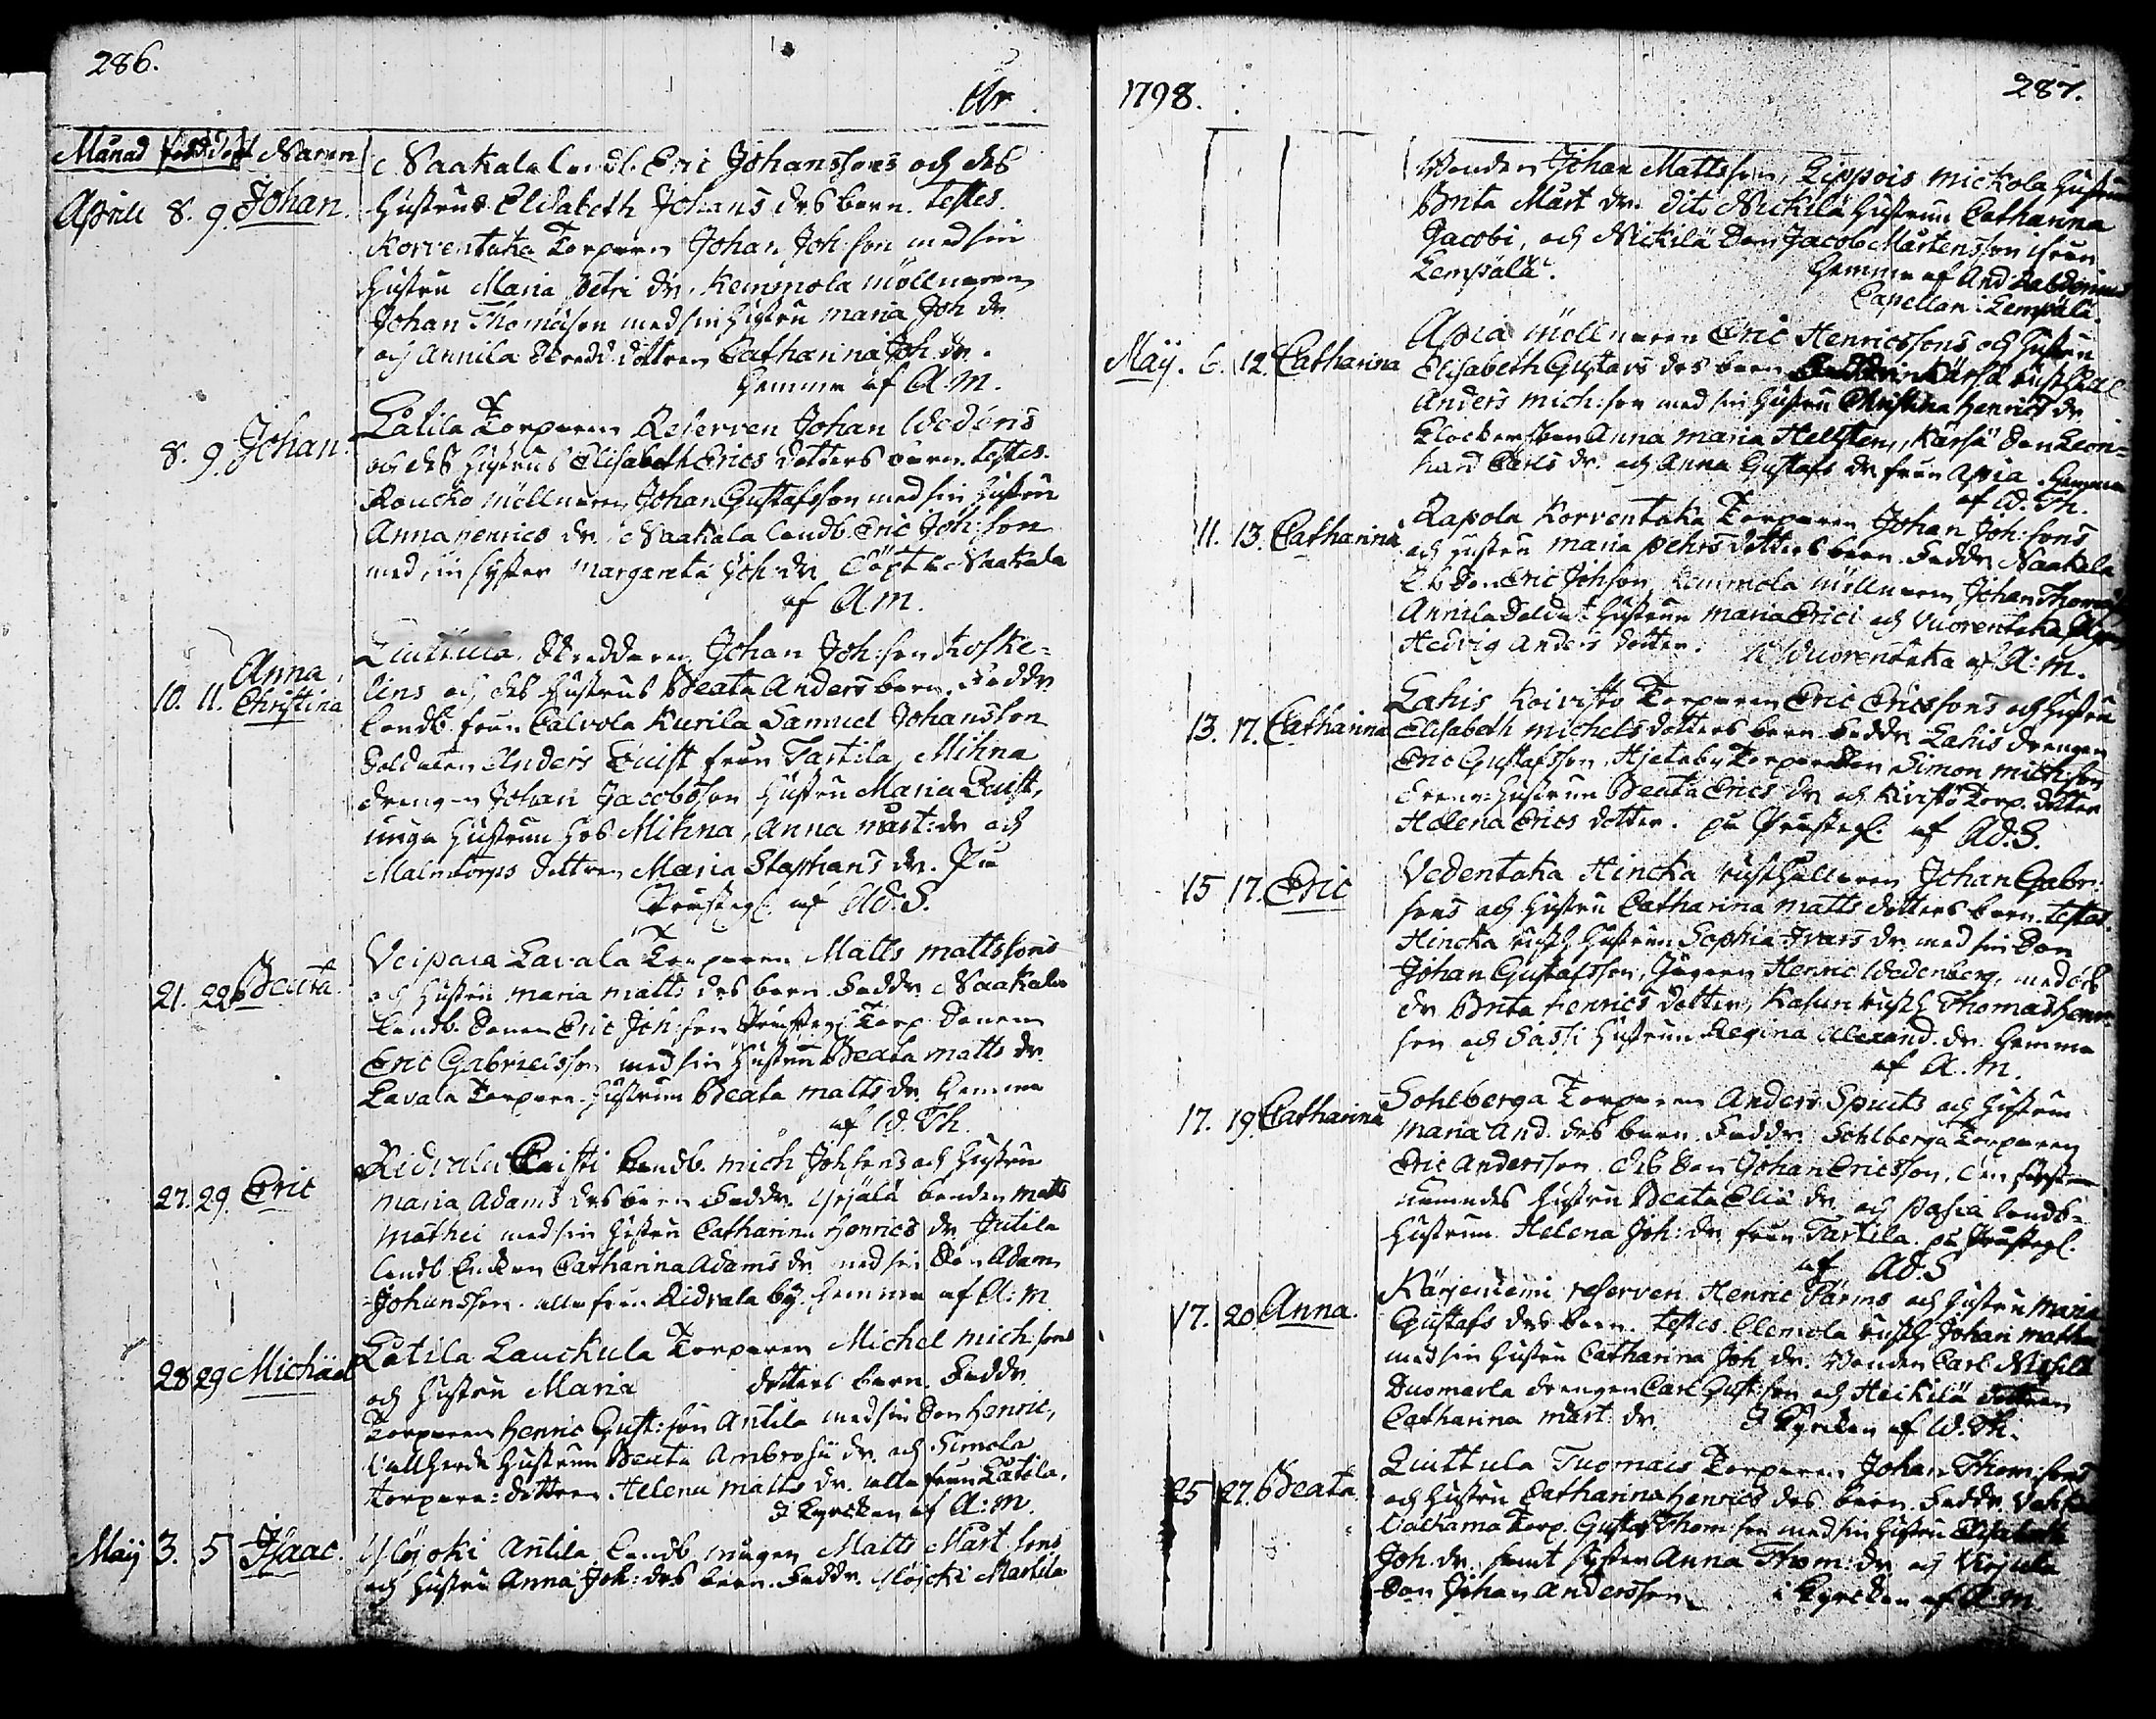 286.
År
Månad född döpt Namn
Aprill 8. 9. Johan.
Naakala landb. Eric Johanssons och des
hustrus Elisabeth Johans des barn. testes.
Korventaka Torparen Johan Joh:son med sin
hustru Maria Petri dr. Kemmola möllnaren
Johan Thomasson med sin hustru Maria Joh dr
och Annila dottren Catharina Joh. dr.
hemma af A.M.
8. 9. Johan.
Låtila Torparen Reserven Johan Wedéns
och des hustrus Elisabeth Erics dotters barn. testes.
Roucko möllnaren Johan Gustafsson med sin hustru
Anna Henrics dr. Naakala landb. Eric Joh:son
med sin syster Margareta Joh. dr. Döpt i Naakala
af A.M.
10. 11. Anna Christina
Skreddaren Johan Joh:son Koske=
lins och des hustrus Beata Anders barn. Faddr.
landb. från Calvola Kurila Samuel Johansson
Soldaten Anders Quist från Tartila, Mihna
drengen Johan Jacobsson hustru Maria Quist,
unga hustrun hos Mihna, Anna Mårt:dr och
Malmtorps dottren Maria Staphans dr. På
Prustegl. af Ad.S.
21. 22. Beata
Voipaia Lavala Torparen Matts Mattssons
och hustru Maria Matts des barn. Faddr. Naakala
landb. Sonen Eric Joh:son Prusteg. Torp. Sonen
Eric Gabrielsson med sin hustru Beata Matts dr.
Lavala Torpare hustrun Beata Matts dr. hemma
af W.Th.
27. 29. Eric
Ridvala landb. Mich Johsons och hustru
Maria Adams des barn Faddr. bonden Matts
Mathei med sin hustru Catharina Henrics dr Jutila
landb. Enckan Catharina Adams dr med sin Son Adam
Johansson. alla från Ridvala by. hemma af A:M
28 29 Michael
Låtila Lauckula Torparen Michel Mich:sons
och hustru Maria dotters barn. Faddr.
Torparen Henric Gust:son Antila med sin Son Henric,
hustrun Beata Ambrosii dr. och Simola
Torpare: dottren Helena Matts dr. alla från Låtila.
I Kyrckan af A:M.
Maij 3. 5 Isaac.
Antila landb. Matts Mårt.sons
och hustru Anna Joh: des barn. Faddr. Martila
1798.
287.
Bonden Johan Mattsson, Lippois Mickola hustrun
Brita Mårt dr. dito Nickilä hustrun Catharina
Jacobi, och Nickilä Son Jacob Mårtensson från
Lempälä. Hemma af And
Capellan i Lempälä.
Maij. 6. 12. Catharina
Apia möllnaren Eric Henricssons och hustru
Elisabeth Gustavs des barn
Anders Mich:son med sin hustru Christina Henrics dr
Anna Maria Hellsten, Kärsä Son Leon=
hard Carls dr. och Anna Gustafs dr från Apia. hemma
af W.Th.
11. 13. Catharina
Rapola Korventaka Torparen Johan Joh:sons
och hustru Maria Pehrsdotters barn. Faddr Naakala
Lb Son Eric Johson, Kemmola möllnaren Johan Thomæson
Annila Soldat hustrun Maria Erici och Vuorentaka
Hedvig Anders dotter. Vuorentaka af A:M.
13. 17. Catharina
Lahis Koivisto Torparen Eric Ericssons och hustru
Elisabeth Michelsdotters barn. Faddr. Lahis drengen
Eric Gustafsson, Hjetaby Torpare Son Simon Mich:son
hustrun Beata Erics dr och Kivisto Torp. dotter
Helena Erics dotter. på Prustegl. af Ad.S.
15 17. Eric
Vedentaka Hincka rusthållaren Johan Gabr.
sons och hustru Catharina Matts dotters barn. testes.
Hincka rusth hustrun Sophia Ivars dr. med sin Son
Johan Gustafsson, Jägarn Henric Wedenberg,
Brita Henrics dotter, rusth Thomas Henr
son och Sassi hustrun Regina Alexand. dr. hemma
af A.M.
17. 19. Catharina
Sohlberga Torparen Anders Spuits och hustrun
Maria And. des barn Faddr. Sohlberga Torparen
Eric Andersson. des Son Johan Ericsson, den först
nemndes hustru Beata Eliæ dr och Pasia landb.
hustrun Helena Joh: dr från Tartila. på Prustegl.
af Ad.S
17. 20 Anna.
Kärjeniemi reserven Henric Pärms och hustru Maria
Gustafs des barn. testes. Clemola rusth Johan
med sin hustru Catharina Joh. dr. Bonden Carl
drengen Carl Gust:son och Heickilä dottren
Catharina Mårt. dr. I Kyrckan af W.Th.
25 27. Beata.
Quittula Tuomais Torparen Johan Thom:sons
och hustru Catharina Henrics des barn. Faddr.
Torp. Gustaf Thom:son med sin hustru Elisabeth
Joh. dr. samt syster Anna Thom:dr och
Son Johan Andersson i Kyrckan af A.M.